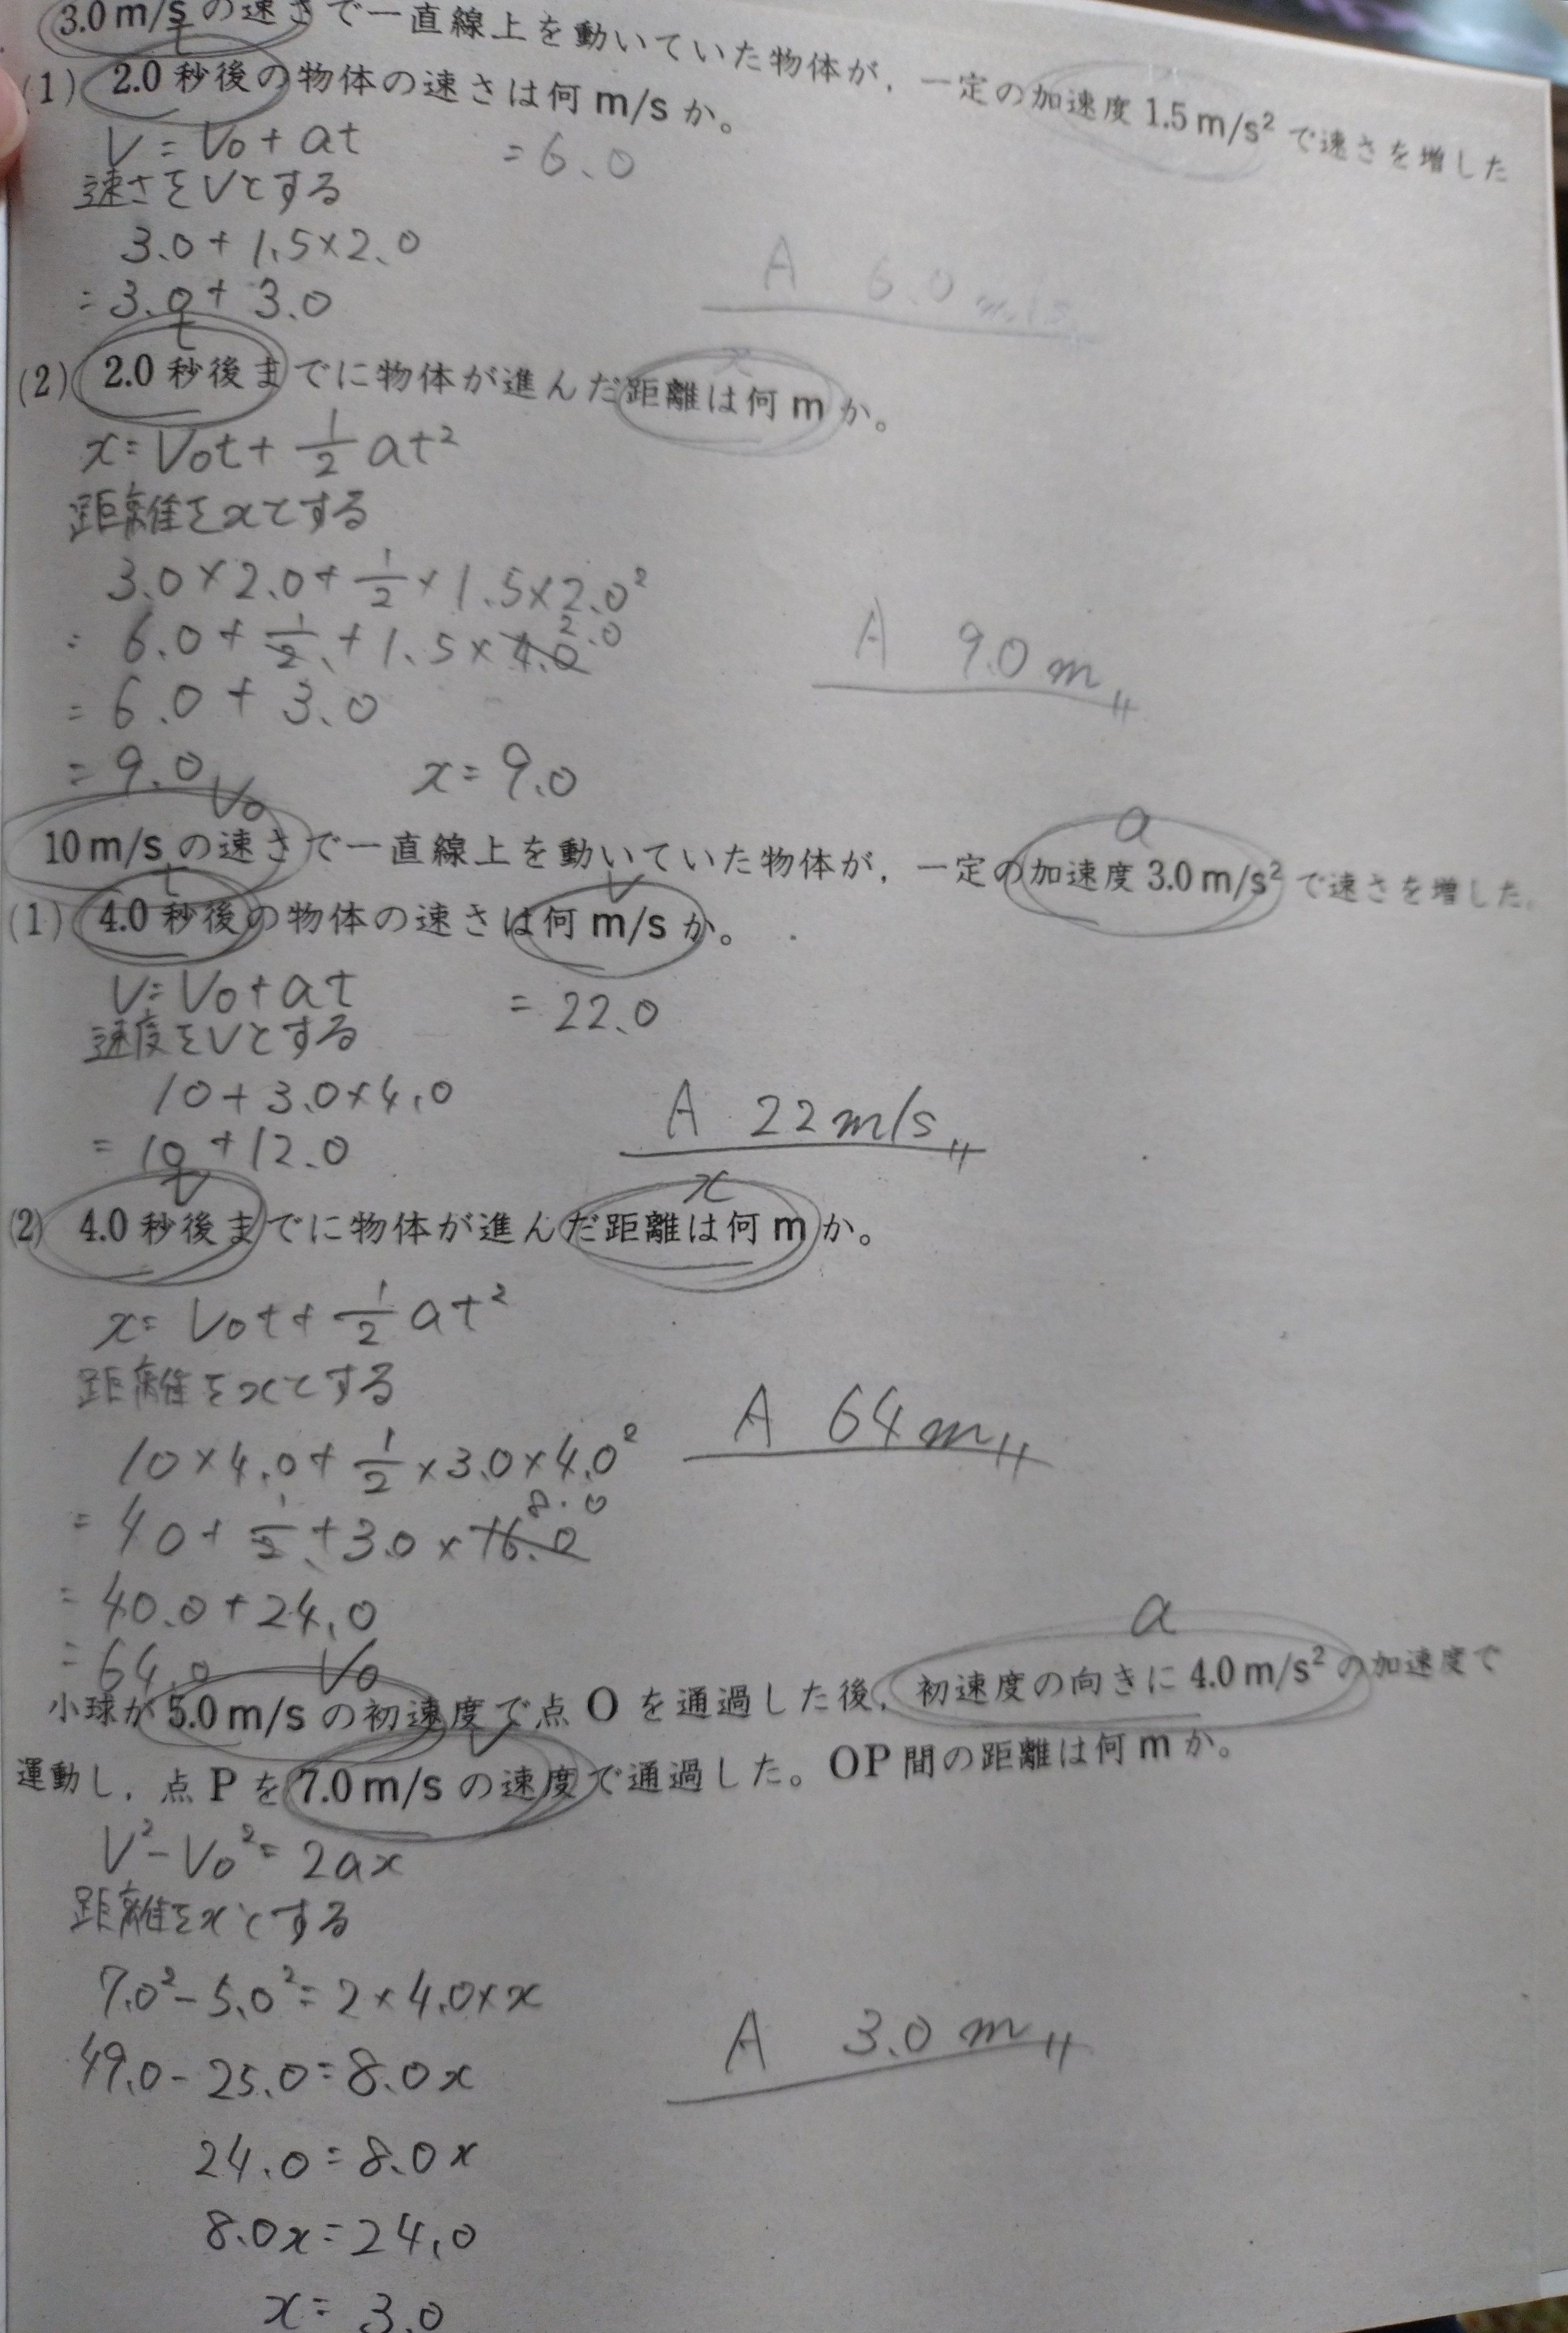 3.0 m/s の速さで一直線上を動いていた物体が，一定の加速度 1.5 m/s² で速さを増した
t
(1) 2.0 秒後の物体の速さは何 m/s か。
V = V₀ + at
= 6.0
速さをVとする
3.0 + 1.5×2.0
= 3.0 + 3.0
A 6.0 m/s
t
x
(2) 2.0 秒後までに物体が進んだ距離は何 m か。
x = V₀t + 1/2 at²
距離をxとする
3.0×2.0 + 1/2 × 1.5×2.0²
= 6.0 + 1/2 + 1.5×4.0 2.0
= 6.0 + 3.0
A 9.0 m
= 9.0
x = 9.0
V₀
a
10 m/s の速さで一直線上を動いていた物体が，一定の加速度 3.0 m/s² で速さを増した。
t
V
(1) 4.0 秒後の物体の速さは何 m/s か。
V = V₀ + at
= 22.0
速度をVとする
10 + 3.0×4.0
= 10 + 12.0
A 22 m/s
t
x
(2) 4.0 秒後までに物体が進んだ距離は何 m か。
x = V₀t + 1/2 at²
距離をxとする
A 64 m
10×4.0 + 1/2 ×3.0×4.0²
= 40 + 1/2 + 3.0×16.0 8.0
= 40.0 + 24.0
= 64.0
V₀
a
小球が 5.0 m/s の初速度で点 O を通過した後，初速度の向きに 4.0 m/s² の加速度で
V
運動し，点 P を 7.0 m/s の速度で通過した。OP 間の距離は何 m か。
V² - V₀² = 2ax
距離をxとする
7.0² - 5.0² = 2×4.0×x
A 3.0 m
49.0 - 25.0 = 8.0x
24.0 = 8.0x
8.0x = 24.0
x = 3.0